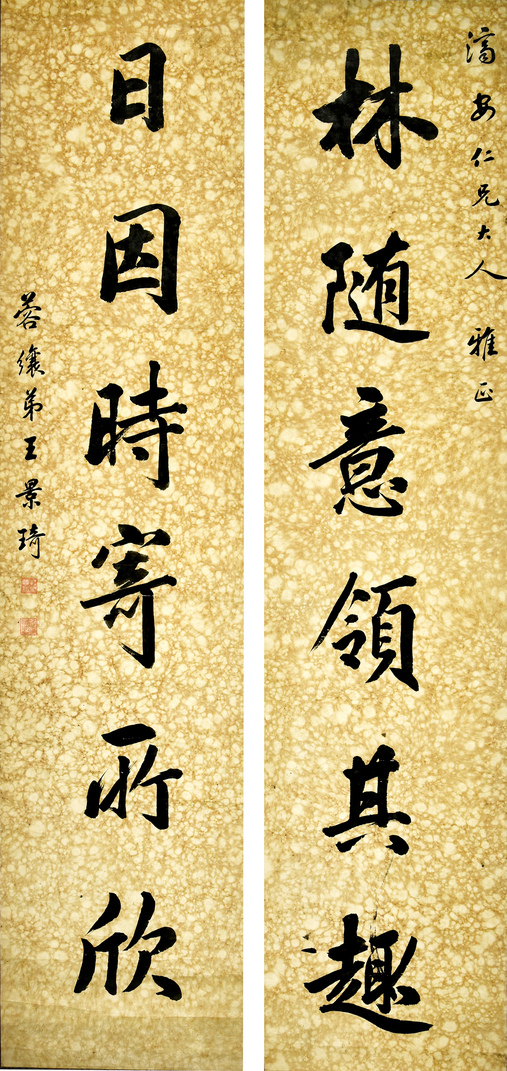 濬安仁兄大人 雅正
林随意領其趣
日因時寄所欣
蓉纕弟王景琦